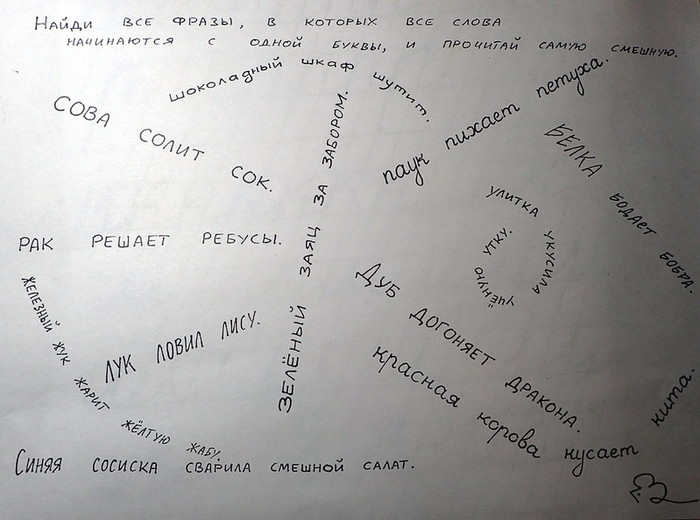 Найди все фразы, в которых все слова
начинаются с одной буквы, и прочитай самую смешную.
шоколадный шкаф шутит.
СОВА СОЛИТ СОК.
ЗЕЛЁНЫЙ ЗАЯЦ ЗА ЗАБОРОМ.
паук пихает петуха.
БЕЛКА БОДАЕТ БОБРА.
УЛИТКА УКУСИЛА УЧЁНУЮ УТКУ.
РАК РЕШАЕТ РЕБУСЫ.
ЖЕЛЕЗНЫЙ ЖУК ЖАРИТ ЖЁЛТУЮ ЖАБУ.
ЛУК ЛОВИЛ ЛИСУ.
ДУБ ДОГОНЯЕТ ДРАКОНА.
красная корова кусает кита.
Синяя сосиска сварила смешной салат.